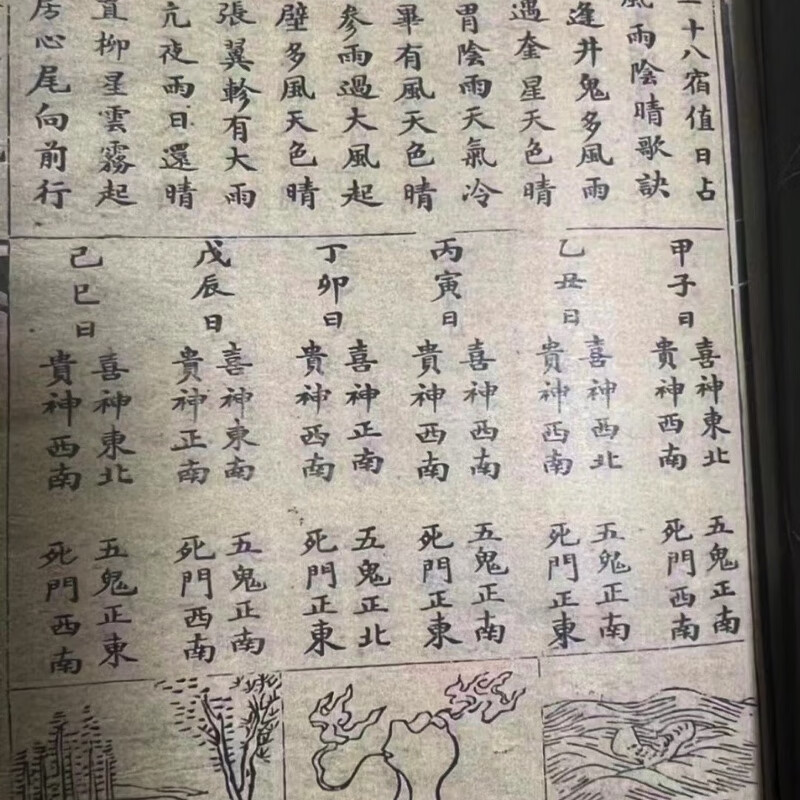 十八宿值日占
風雨陰晴歌訣
逢井鬼多風雨
遇奎星天色晴
胃陰雨天氣冷
畢有風天色晴
參雨過大風起
壁多風天色晴
張翼軫有大雨
亢夜雨日還晴
柳星雲霧起
心尾向前行
甲子日
喜神東北
貴神西南
五鬼正南
死門西南
乙丑日
喜神西北
貴神西南
五鬼正南
死門正東
丙寅日
喜神西南
貴神西南
五鬼正南
死門正東
丁卯日
喜神正南
貴神西南
五鬼正北
死門正東
戊辰日
喜神東南
貴神正南
五鬼正南
死門西南
己巳日
喜神東北
貴神西南
五鬼正東
死門西南